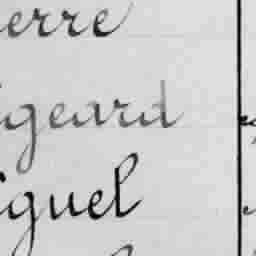 erre
geard
iguel